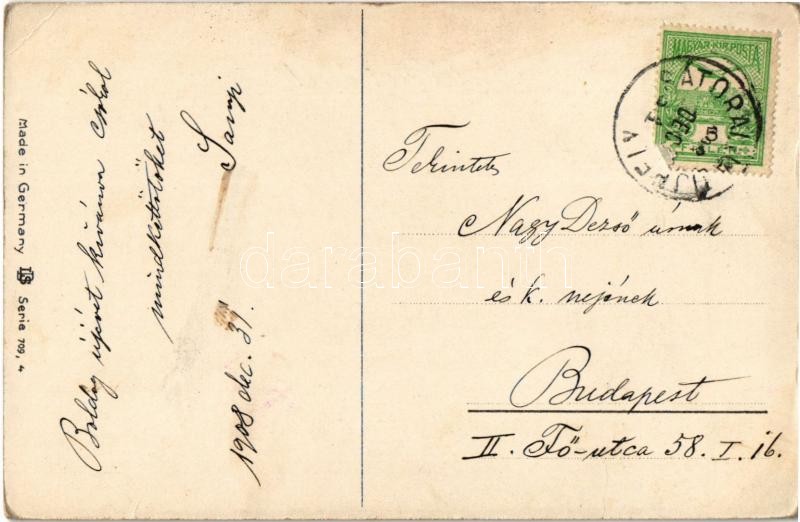 Made in Germany Serie 709, 4
Boldog újévet kivánva csókol
mindkettőtöket
1908 dec. 31.
MAGYAR KIR. POSTA
Tekintetes
Nagy Dezső úrnak
és k. nejének
Budapest
II. Fő-utca 58. I. 16.
darabanth